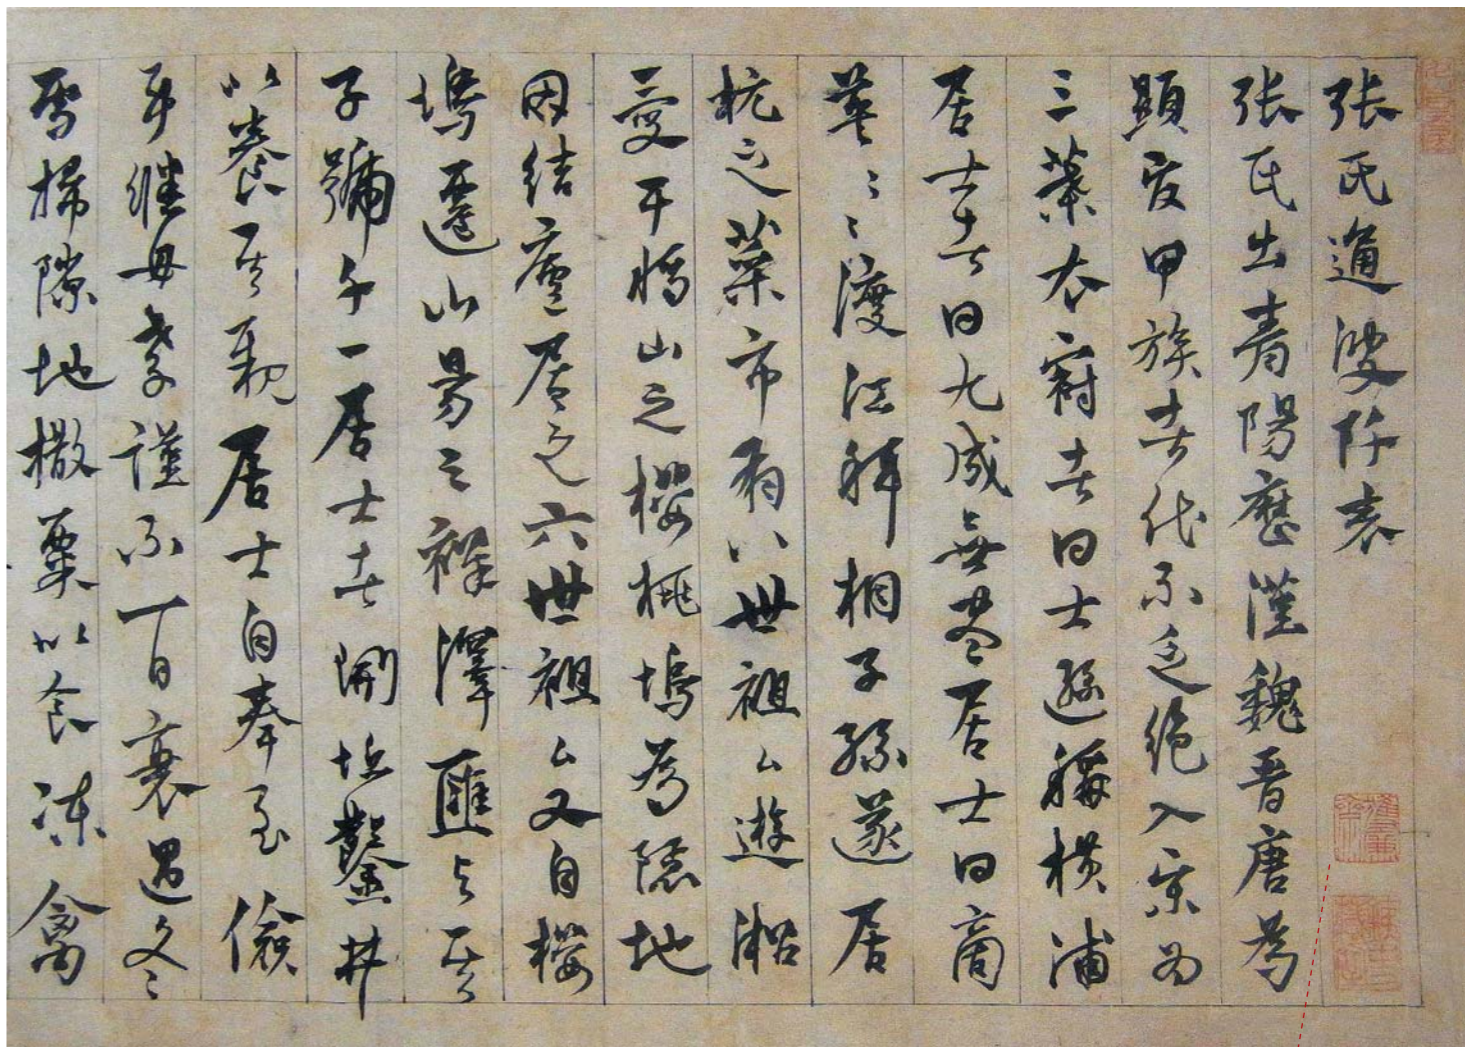 張氏通波阡表
張氏出青陽歷漢魏晉唐為
顯官甲族者代不乏絕入宋為
三葉衣冠者曰士遜稱橫浦
居士者曰九成無盡居士曰商
英〻〻渡江拜相子孫遂居
杭之菜市有八世祖厶遊淞
愛干將山之櫻桃塢為隱地
因結廬居之六世祖厶又自櫻
塢遷山陽之祥澤匯与其
子號千一居士者開丘鑿井
以養其親居士自奉至儉
事繼母孝謹不一日衰遇冬〻
雪掃隙地撒粟以食凍禽